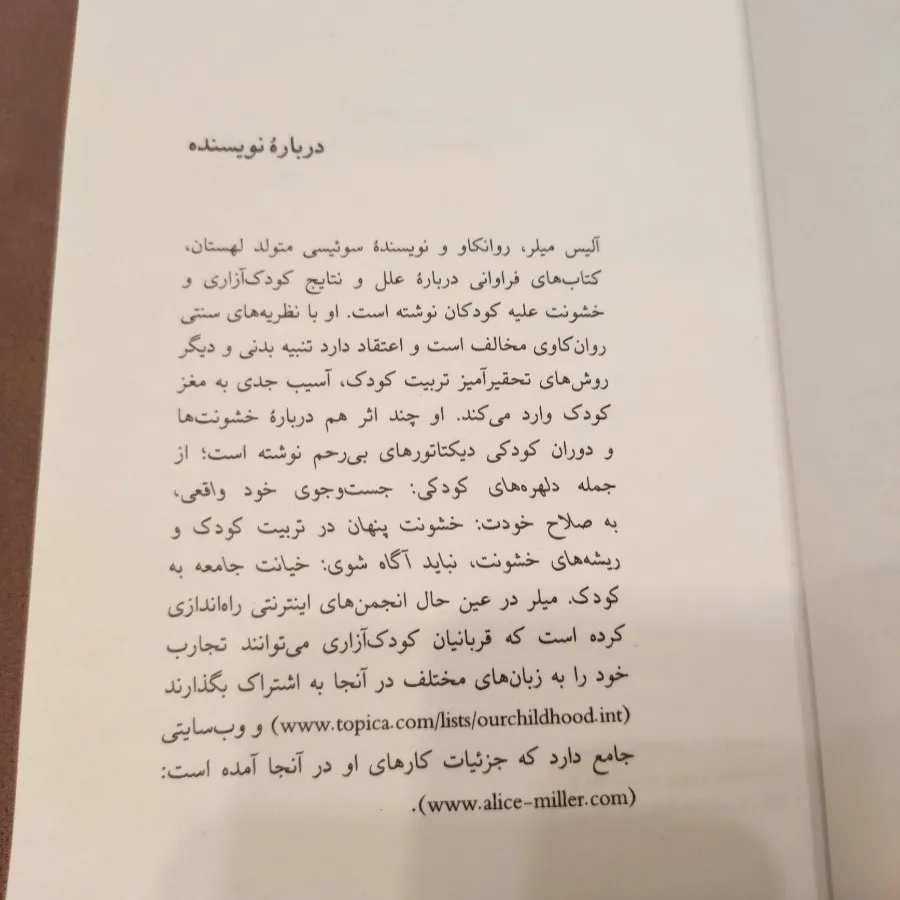 دربارهٔ نویسنده
آلیس میلر، روانکاو و نویسندهٔ سوئیسی متولد لهستان،
کتاب‌های فراوانی دربارهٔ علل و نتایج کودک‌آزاری و
خشونت علیه کودکان نوشته است. او با نظریه‌های سنتی
روان‌کاوی مخالف است و اعتقاد دارد تنبیه بدنی و دیگر
روش‌های تحقیرآمیز تربیت کودک، آسیب جدی به مغز
کودک وارد می‌کند. او چند اثر هم دربارهٔ خشونت‌ها
و دوران کودکی دیکتاتورهای بی‌رحم نوشته است؛ از
جمله دلهره‌های کودکی: جست‌وجوی خود واقعی،
به صلاح خودت: خشونت پنهان در تربیت کودک و
ریشه‌های خشونت، نباید آگاه شوی: خیانت جامعه به
کودک. میلر در عین حال انجمن‌های اینترنتی راه‌اندازی
کرده است که قربانیان کودک‌آزاری می‌توانند تجارب
خود را به زبان‌های مختلف در آنجا به اشتراک بگذارند
(www.topica.com/lists/ourchildhood.int) و وب‌سایتی
جامع دارد که جزئیات کارهای او در آنجا آمده است:
(www.alice-miller.com).